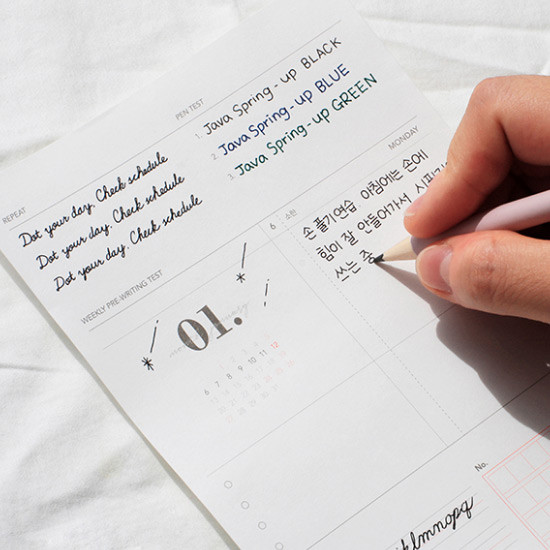 PEN TEST
1. Java Spring-up BLACK
2. Java Spring-up BLUE
3. Java Spring-up GREEN
REPEAT
Dot your day, Check schedule
Dot your day, Check schedule
Dot your day, Check schedule
MONDAY
6 소한
손 풀기 연습 아침에는 손에
힘이 잘 안들어가서
쓰는 중
WEEKLY PRE-WRITING TEST
01.
6 7 8 9 10 11 12
No.
klmnopq